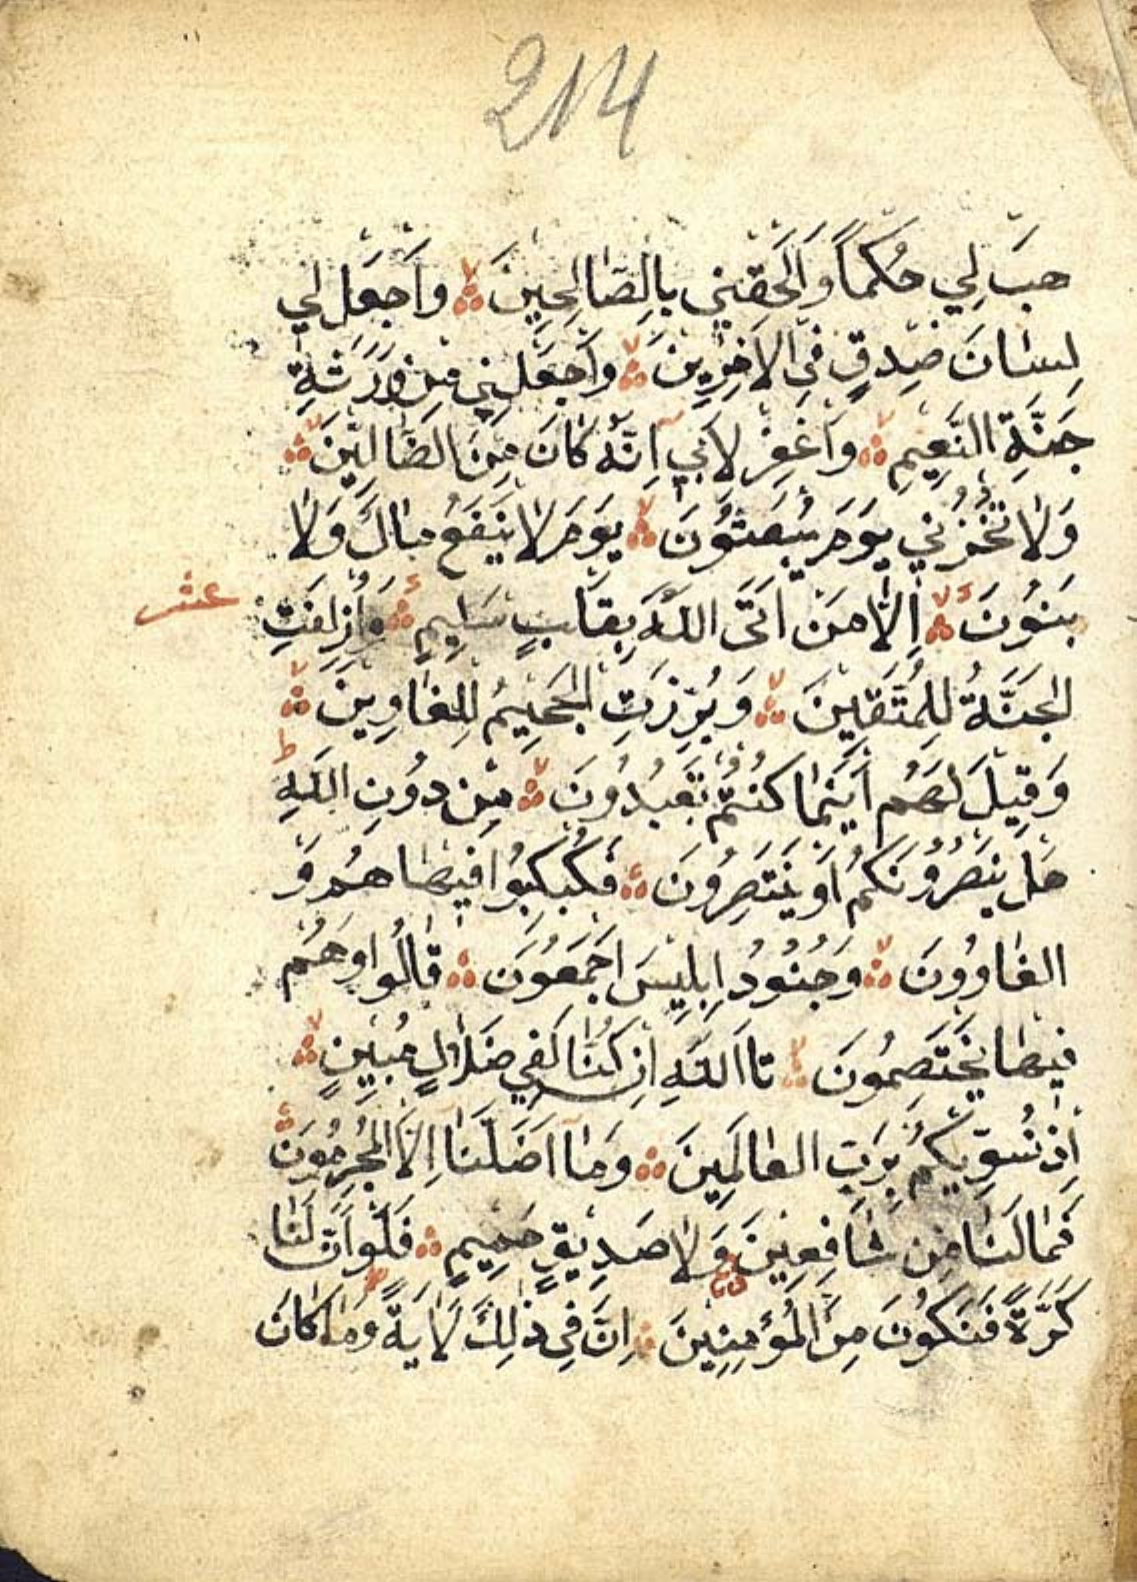 214
هَبْ لِي حُكْمًا وَأَلْحِقْنِي بِالصَّالِحِينَ ۙ وَاجْعَلْ لِي
لِسَانَ صِدْقٍ فِي الْآخِرِينَ ۙ وَاجْعَلْنِي مِنْ وَرَثَةِ
جَنَّةِ النَّعِيمِ ۙ وَاغْفِرْ لِأَبِي إِنَّهُ كَانَ مِنَ الضَّالِّينَ ۙ
وَلَا تُخْزِنِي يَوْمَ يُبْعَثُونَ ۙ يَوْمَ لَا يَنْفَعُ مَالٌ وَلَا
بَنُونَ ۙ إِلَّا مَنْ أَتَى اللَّهَ بِقَلْبٍ سَلِيمٍ وَأُزْلِفَتِ
عشر
الْجَنَّةُ لِلْمُتَّقِينَ ۙ وَبُرِّزَتِ الْجَحِيمُ لِلْغَاوِينَ ۙ
وَقِيلَ لَهُمْ أَيْنَمَا كُنْتُمْ تَعْبُدُونَ ۙ مِنْ دُونِ اللَّهِ ؕ
هَلْ يَنْصُرُونَكُمْ أَوْ يَنْتَصِرُونَ فَكُبْكِبُوا فِيهَا هُمْ وَ
الْغَاوُونَ ۙ وَجُنُودُ إِبْلِيسَ أَجْمَعُونَ قَالُوا وَهُمْ
فِيهَا يَخْتَصِمُونَ ۙ تَاللَّهِ إِنْ كُنَّا لَفِي ضَلَالٍ مُبِينٍ ۙ
إِذْ نُسَوِّيكُمْ بِرَبِّ الْعَالَمِينَ وَمَا أَضَلَّنَا إِلَّا الْمُجْرِمُونَ
فَمَا لَنَا مِنْ شَافِعِينَ وَلَا صَدِيقٍ حَمِيمٍ فَلَوْ أَنَّ لَنَا
كَرَّةً فَنَكُونَ مِنَ الْمُؤْمِنِينَ إِنَّ فِي ذَلِكَ لَآيَةً وَمَا كَانَ